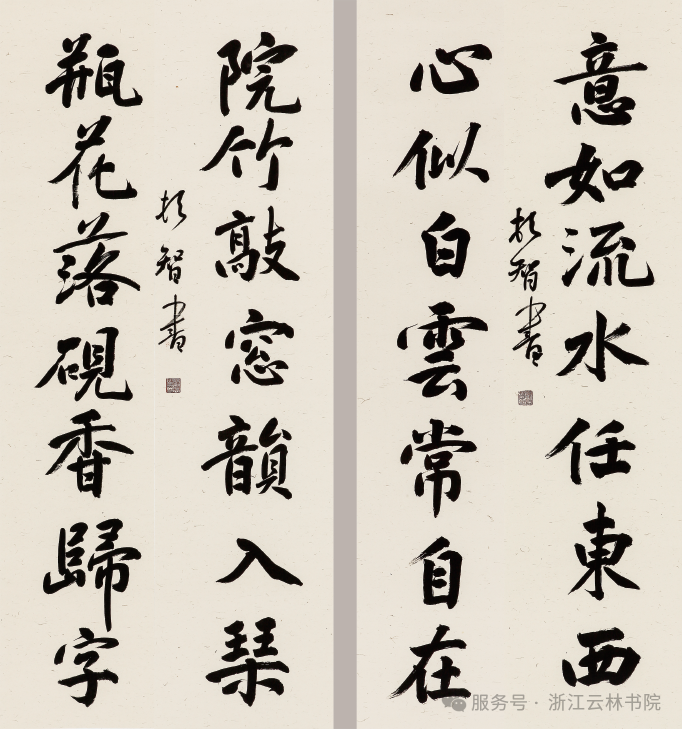 意如流水任東西
智書
心似白雲常自在
院竹敲窓韻入琹
智書
瓶花落硯香歸字
服务号 · 浙江云林书院